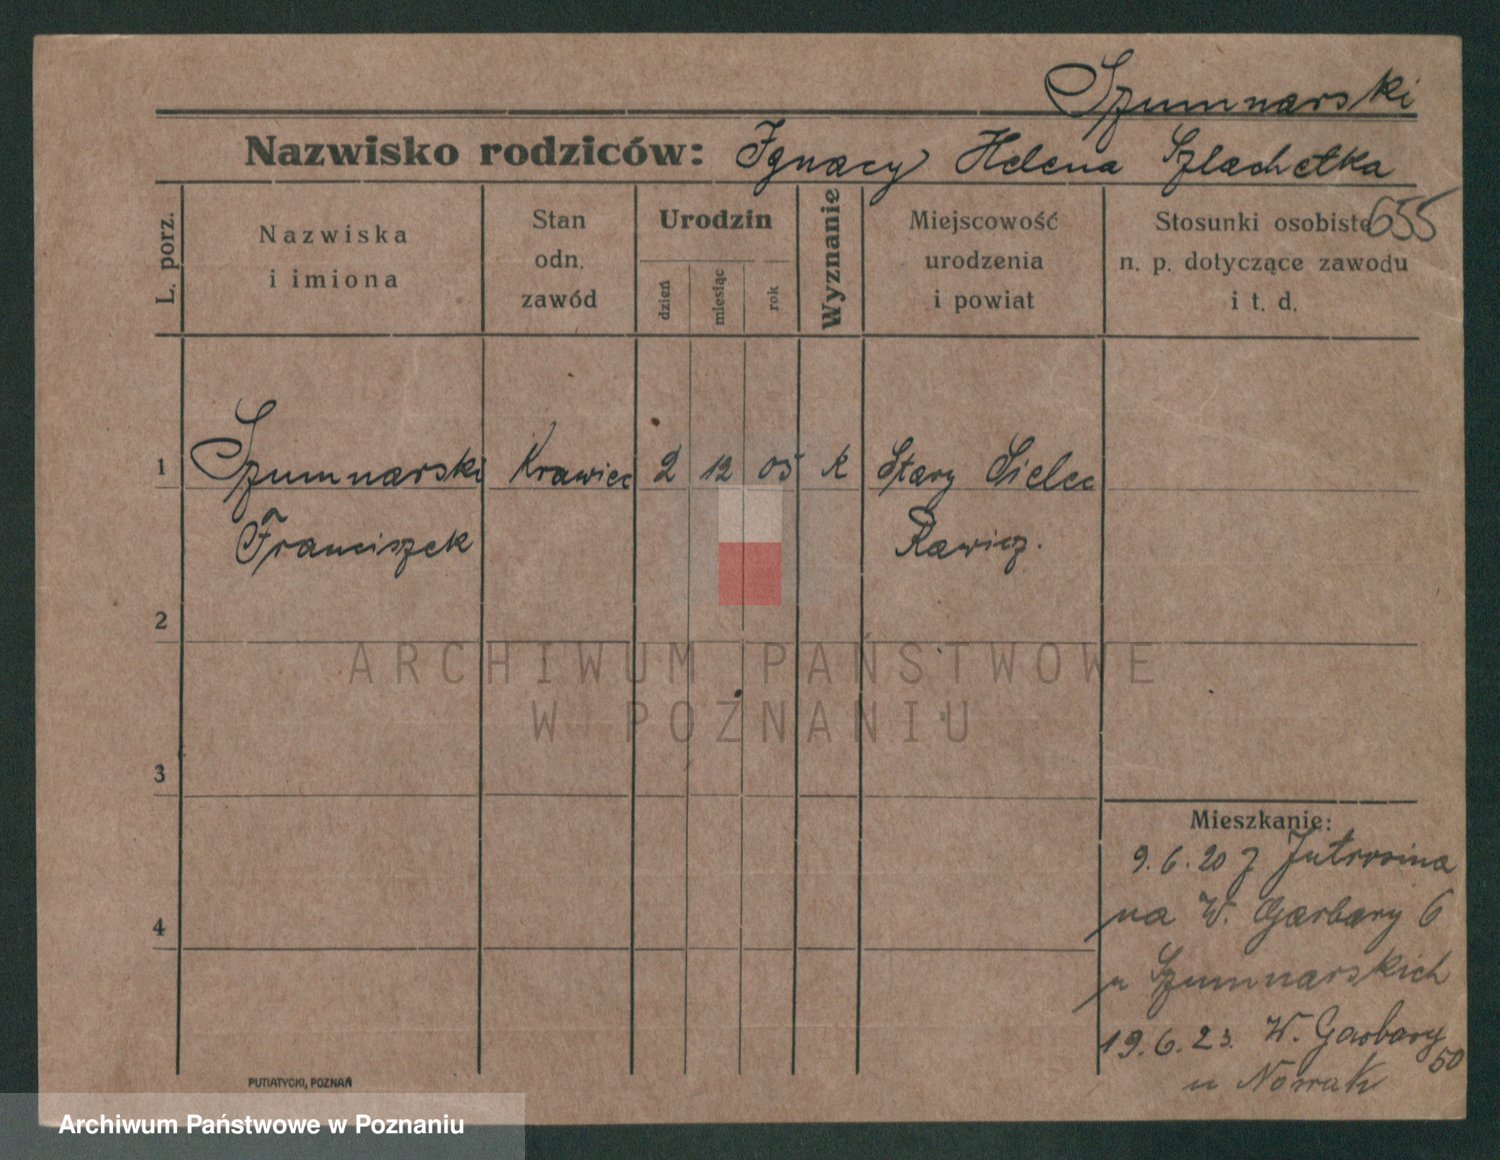 Szumnarski
Nazwisko rodziców: Ignacy Helena Szlachetka
655
L. porz.
Nazwiska
i imiona
Stan
odn.
zawód
Urodzin
dzień
miesiąc
rok
Wyznanie
Miejscowość
urodzenia
i powiat
Stosunki osobiste
n. p. dotyczące zawodu
i t. d.
1 Szumnarski Krawiec 2 12 05 k Stary Sielec
Franciszek Rawicz.
2
ARCHIWUM PAŃSTWOWE
W POZNANIU
3
Mieszkanie:
9.6.20 z Jutrosina
na W. Garbary 6
u Szumnarskich
19.6.23. W. Garbary
50
u Nowak
4
PUTIATYCKI, POZNAŃ
Archiwum Państwowe w Poznaniu